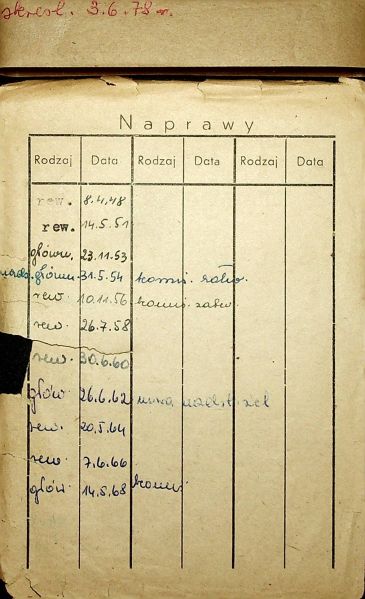 skreśl. 3.6.78 r.
Naprawy
Rodzaj Data Rodzaj Data Rodzaj Data
rew. 8.4.48
rew. 14.5.51
główn. 23.11.53
główn. 31.5.54 komis.
rew. 10.11.56 komis.
rew. 26.7.58
rew. 30.6.60
głów 26.6.62
rew. 20.5.64
rew. 7.6.66
głów. 14.5.68 komis